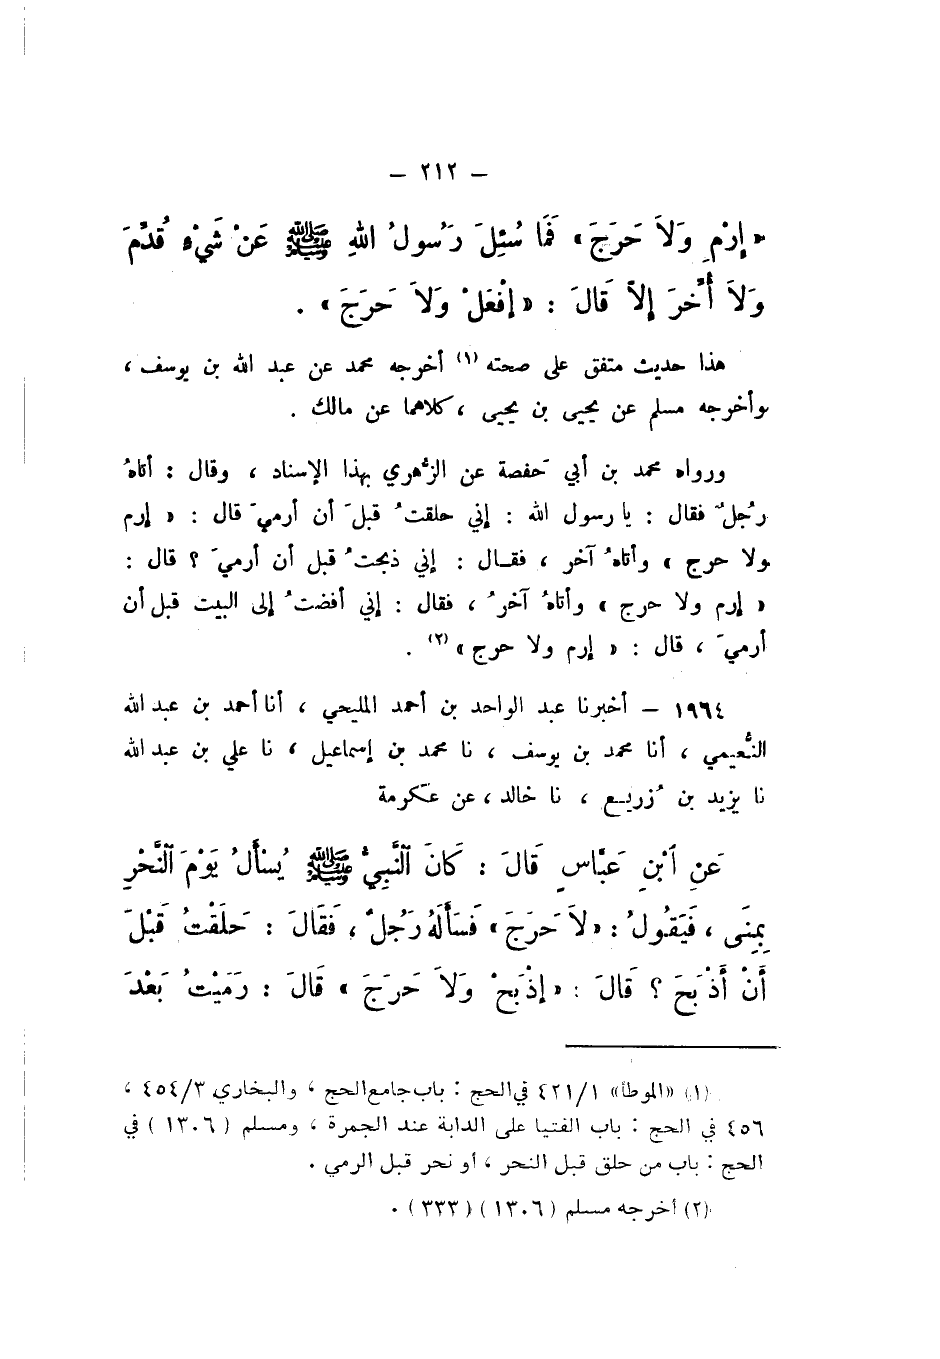 – ٢١٢ –
« إِرْمِ وَلاَ حَرَجَ » فَمَا سُئِلَ رَسُولُ اللهِ ﷺ عَنْ شَيْءٍ قُدِّمَ
وَلاَ أُخِّرَ إِلاَّ قَالَ : « إِفْعَلْ وَلاَ حَرَجَ » .
هذا حديث متفق على صحته (١) أخرجه محمد عن عبد الله بن يوسف ،
وأخرجه مسلم عن يحيى بن يحيى ، كلاهما عن مالك .
ورواه محمد بن أبي حَفصة عن الزُّهري بهذا الإسناد ، وقال : أتاهُ
رجُلٌ فقال : يا رسول الله : إني حلقتُ قبلَ أن أرميَ قال : « إرم
ولا حرج » وأتاهُ آخر ، فقـال : إني ذبحتُ قبل أن أرميَ ؟ قال :
« إرم ولا حرج » وأتاهُ آخرُ ، فقال : إني أفضتُ إلى البيت قبل أن
أرميَ ، قال : « إرم ولا حرج » (٢) .
١٩٦٤ – أخبرنا عبد الواحد بن أحمد المليحي ، أنا أحمد بن عبد الله
النُّعيمي ، أنا محمد بن يوسف ، نا محمد بن إسماعيل ، نا علي بن عبد الله
نا يزيد بن زُريـع ، نا خالد ، عن عكرمة
عَنِ ٱبْنِ عَبَّاسٍ قَالَ : كَانَ ٱلنَّبِيُّ ﷺ يُسْأَلُ يَوْمَ ٱلنَّحْرِ
بِمِنَى ، فَيَقُولُ : « لاَ حَرَجَ » فَسَأَلَهُ رَجُلٌ ، فَقَالَ : حَلَقْتُ قَبْلَ
أَنْ أَذْبَحَ ؟ قَالَ : « إِذْبَحْ وَلاَ حَرَجَ » قَالَ : رَمَيْتُ بَعْدَ
(١) « الموطأ » ٤٢١/١ في الحج : باب جامع الحج ، والبخاري ٤٥٤/٣ ،
٤٥٦ في الحج : باب الفتيا على الدابة عند الجمرة ، ومسلم ( ١٣٠٦ ) في
الحج : باب من حلق قبل النحر ، أو نحر قبل الرمي .
(٢) أخرجه مسلم ( ١٣٠٦ ) ( ٣٣٣ ) .